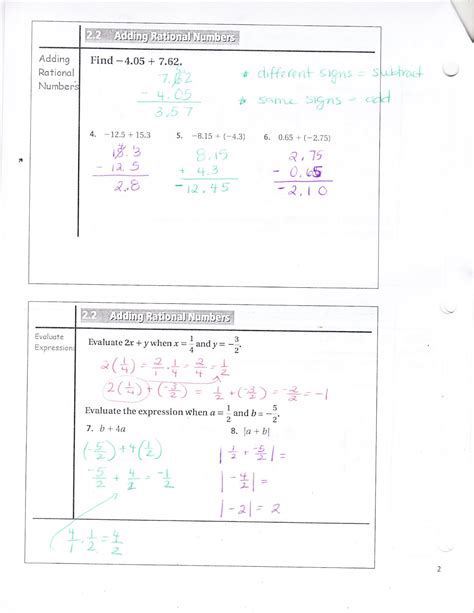 2.2 Adding Rational Numbers
Adding
Rational
Numbers
Find −4.05 + 7.62.
7.62
− 4.05
3.57
* different signs = subtract
* same signs - add
4. −12.5 + 15.3
5. −8.15 + (−4.3)
6. 0.65 + (−2.75)
15.3
− 12.5
2.8
8.15
+ 4.3
−12.45
2.75
− 0.65
−2.10
2.2 Adding Rational Numbers
Evaluate
Expression
Evaluate 2x + y when x = 1/4 and y = −3/2.
2(1/4) = 2/1 · 1/4 = 2/4 = 1/2
2(1/4) + (−3/2) = 1/2 + (−3/2) = −2/2 = −1
Evaluate the expression when a = 1/2 and b = −5/2.
7. b + 4a
8. |a + b|
(−5/2) + 4(1/2)
|1/2 + −5/2| =
−5/2 + 4/2 = −1/2
|−4/2| =
|−2| = 2
4/1 · 1/2 = 4/2
2